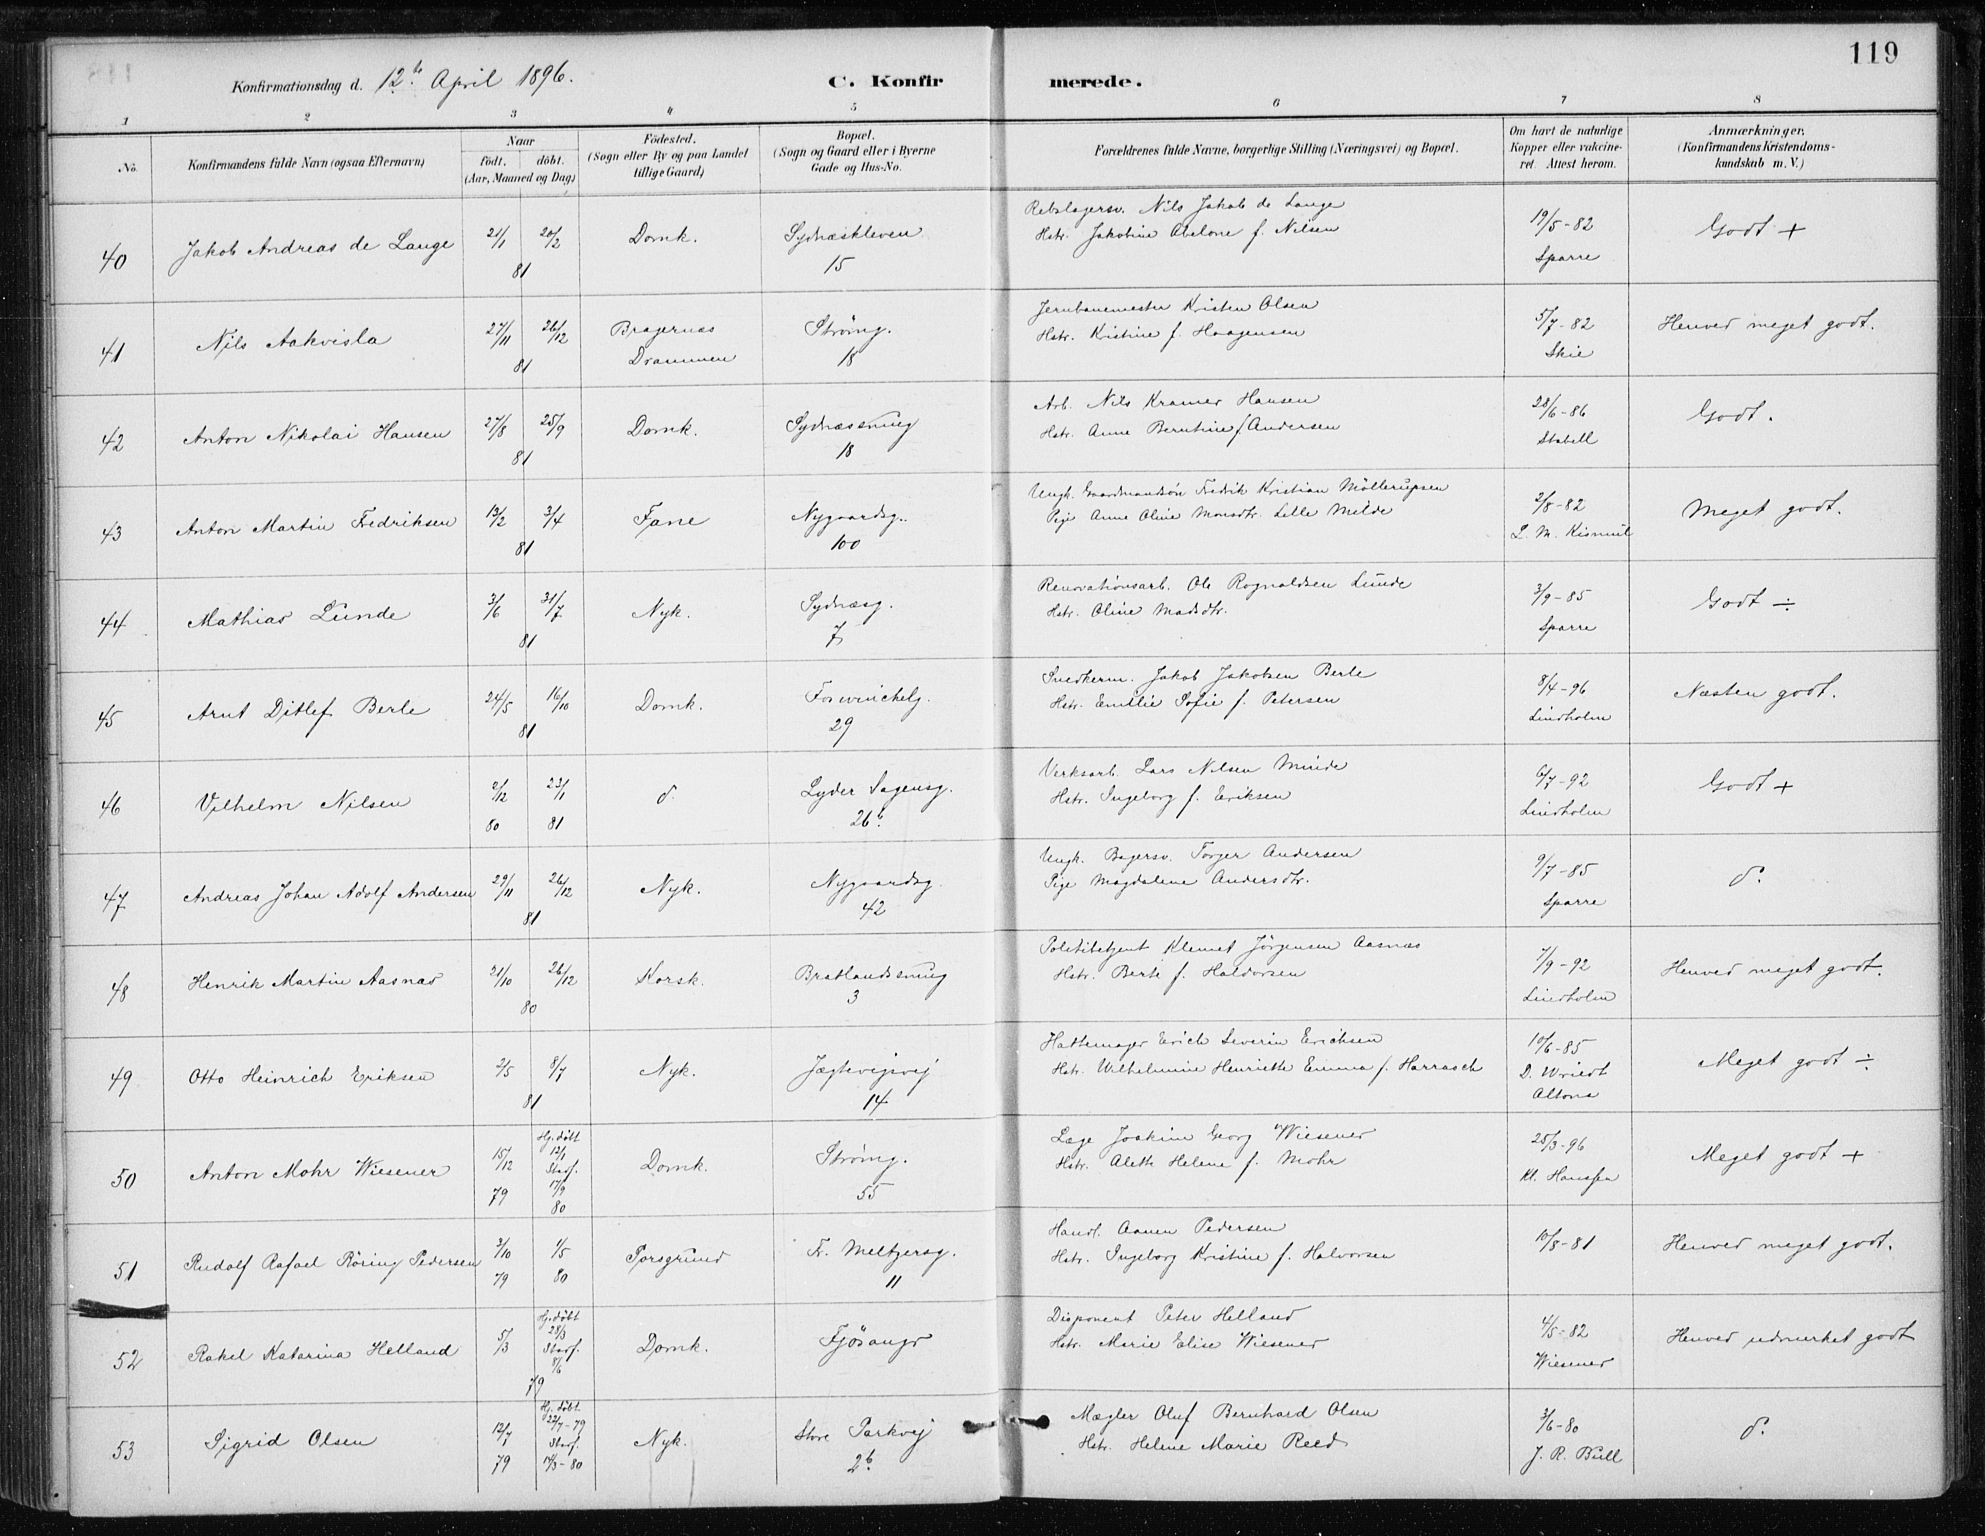 119
Konfirmationsdag d. 12te April 1896.
C. Konfirmerede.
1 2 3 4 5 6 7 8
No.
Konfirmandens fulde Navn (ogsaa Efternavn)
Naar
födt. döbt.
(Aar, Maaned og Dag)
Födested.
(Sogn eller By og paa Landet
tillige Gaard)
Bopæl.
(Sogn og Gaard eller i Byerne
Gade og Hus-No.
Forældrenes fulde Navne, borgerlige Stilling (Næringsvei) og Bopæl.
Om havt de naturlige
Kopper eller vakcine-
ret. Attest herom.
Anmærkninger,
(Konfirmandens Kristendoms-
kundskab m. V.)
40 Jakob Andreas de Lange 21/1 20/2 81 Domk. Sydnæskleven 15
Rebslagersv. Nils Jakob de Lange
Hstr. Jakobine Abelone f. Nilsen
19/5-82 Sparre Godt +
41 Nils Aakvisla 27/11 26/12 81 Bragernæs Drammen Strømg. 18
Jernbanemester Kristen Olsen
Hstr. Kristine f. Haagensen
5/7-82 Skie Henved meget godt.
42 Anton Nikolai Hansen 27/8 25/9 81 Domk. Sydnæssmug 18
Arb. Nils Kramer Hansen
Hstr. Anne Berntine f. Andersen
28/6-86 Stabell Godt.
43 Anton Martin Fredriksen 13/2 3/4 81 Fane Nygaardsg. 100
Ungk. Gaardmandsøn Fredrik Kristian Möllerupsen
Pige Anne Oline Monsdtr. Lille Milde
2/8-82 L. M. Kismul Meget godt.
44 Mathias Lunde 3/6 31/7 81 Nyk. Sydnæsg. 7
Renovationsarb. Ole Rognaldsen Lunde
Hstr. Oline Madsdtr.
3/9-85 Sparre Godt ÷
45 Arnt Ditlef Berle 24/5 16/10 81 Domk. Foswinckelg. 29
Snedkerm. Jakob Jakobsen Berle
Hstr. Emilie Sofie f. Petersen
8/4-96 Lindholm Næsten godt.
46 Vilhelm Nilsen 2/12 80 23/1 81 d. Lyder Sagensg. 26b.
Verksarb. Lars Nilsen Minde
Hstr. Ingeborg f. Eriksen
6/7-92 Lindholm Godt +
47 Andreas Johan Adolf Andersen 29/11 26/12 81 Nyk. Nygaardsg. 42
Ungk. Bagersv. Torger Andersen
Pige Magdalene Andersdtr.
9/7-85 Sparre d.
48 Henrik Martin Aasnæs 21/10 26/12 80 Korsk. Bratlandssmug 3
Politibetjent Klemet Jörgensen Aasnæs
Hstr. Berte f. Haldorsen
7/9-92 Lindholm Henved meget godt.
49 Otto Heinrich Eriksen 2/5 8/7 81 Nyk. Jægtevigsvej 14
Hattemager Erich Severin Erichsen
Hstr. Wilhelmine Henriette Emma f. Harrasch
10/6-85 D. Wriedt Altona Meget godt ÷
50 Anton Mohr Wiesener 15/12 79 Hj.døbt 12/1 Stadf. 17/9 80 Domk. Strømg. 55
Læge Joakim Georg Wiesener
Hstr. Alette Helene f. Mohr
25/3-96 Kl. Hanssen Meget godt +
51 Rudolf Rafael Röring Pedersen 3/10 79 1/5 80 Porsgrund Fr. Meltzersg. 11
Handl. Aanen Pedersen
Hstr. Ingeborg Kristine f. Halvorsen
10/8-81 Henved meget godt.
52 Rakel Katarina Helland 5/3 Hj.døbt 28/3 Stadf. 8/6 79 Domk. Fjösanger
Disponent Peter Helland
Hstr. Marie Elise Wiesener
4/5-82 Wiesener Henved udmerket godt
53 Sigrid Olsen 12/7 79 Hj.døbt 22/7-79 Stadf. 17/3-80 Nyk. Store Parkvej 2b.
Mægler Oluf Bernhard Olsen
Hstr. Helene Marie Reed
3/6-80 J. R. Bull d.